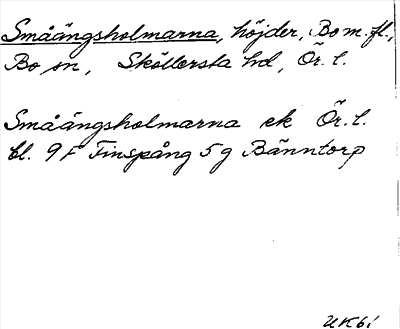 Småängsholmarna, höjder, Bo m.fl.,
Bo sn, Sköllersta hd, Ör. l.
Småängsholmarna ek Ör. l.
bl. 9 F Finspång 5 g Bänntorp
UK61